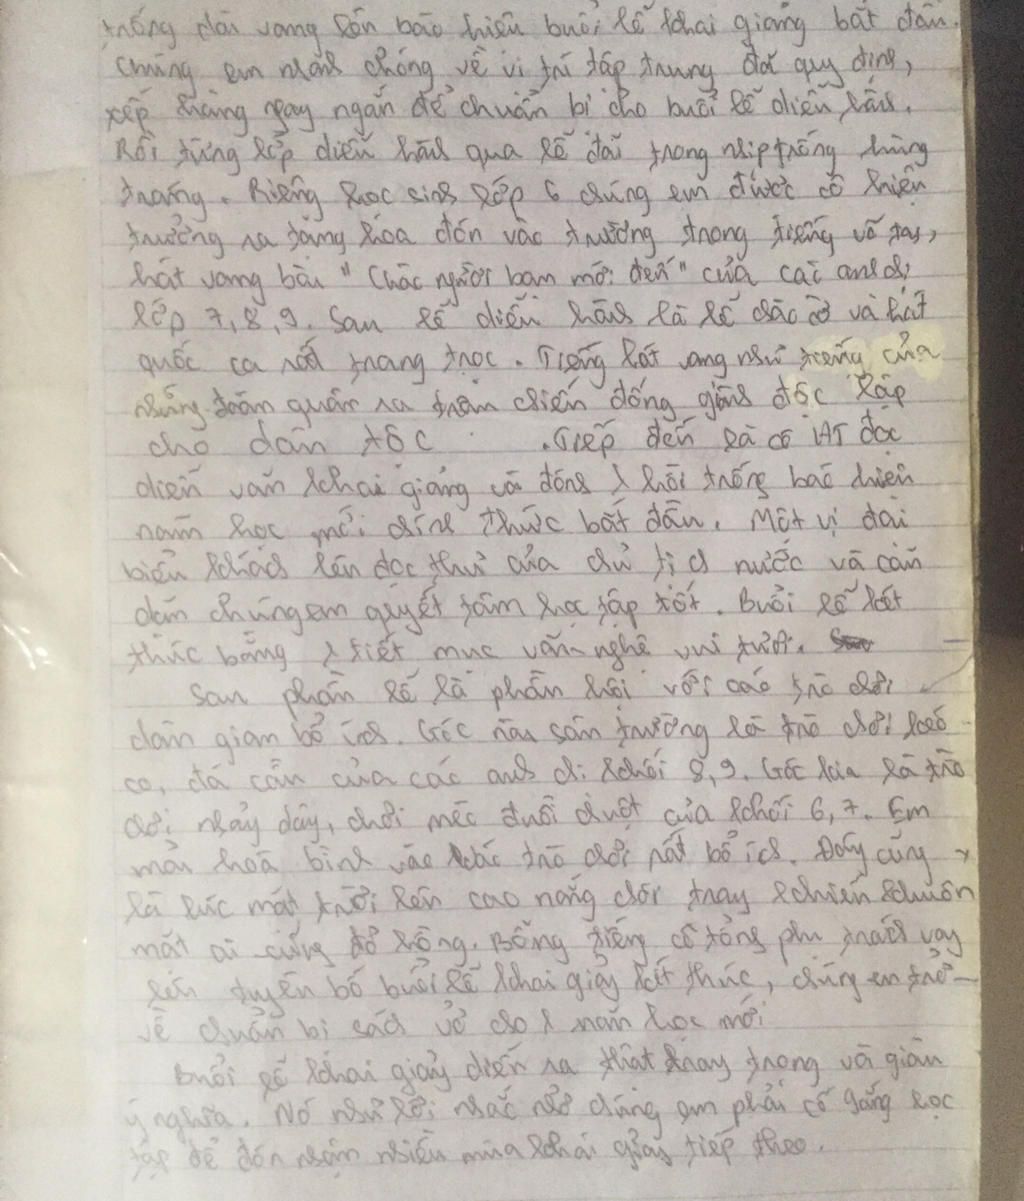 trống dài vang lên báo hiệu buổi lễ khai giảng bắt đầu.
Chúng em nhanh chóng về vị trí tập trung đã quy định,
xếp hàng ngay ngắn để chuẩn bị cho buổi lễ diễu hành.
Rồi từng lớp diễu hành qua lễ đài trong nhịp trống hùng
tráng. Riêng học sinh lớp 6 chúng em được cô hiệu
trưởng ra tặng hoa đón vào trường trong tiếng vỗ tay,
hát vang bài "Chào người bạn mới đến" của các anh chị
lớp 7, 8, 9. Sau lễ diễu hành là lễ chào cờ và hát
quốc ca rất trang trọc. Tiếng hát vang như tiếng của
những đoàn quân ra trận chiến đống giành độc lập
cho dân tộc. Tiếp đến là cô HT đọc
diễn văn khai giảng và đánh 1 hồi trống báo hiệu
năm học mới chính thức bắt đầu. Một vị đại
biểu khách lên đọc thư của chủ tịch nước và căn
dặn chúng em quyết tâm học tập tốt. Buổi lễ kết
thúc bằng 1 tiết mục văn nghệ vui tươi.
Sau phần lễ là phần hội với các trò chơi
dân gian bổ ích. Góc này sân trường là trò chơi kéo
co, đá cầu của các anh chị khối 8, 9. Góc kia là trò
chơi nhảy dây, chơi mèo đuổi chuột của khối 6, 7. Em
mải hoà bình vào các trò chơi rất bổ ích. Đấy cũng
là lúc mặt trời lên cao nắng chói tray khiến khuôn
mặt ai cũng đỏ hồng. Bỗng tiếng cô tổng phụ trách vang
lên tuyên bố buổi lễ khai giảng kết thúc, chúng em trở
về chuẩn bị sách vở cho 1 năm học mới
Buổi lễ khai giảng diễn ra thật trang trong và giàu
ý nghĩa. Nó như lời nhắc nhở chúng em phải cố gắng học
tập để đón nhận nhiều mùa khai giảng tiếp theo.